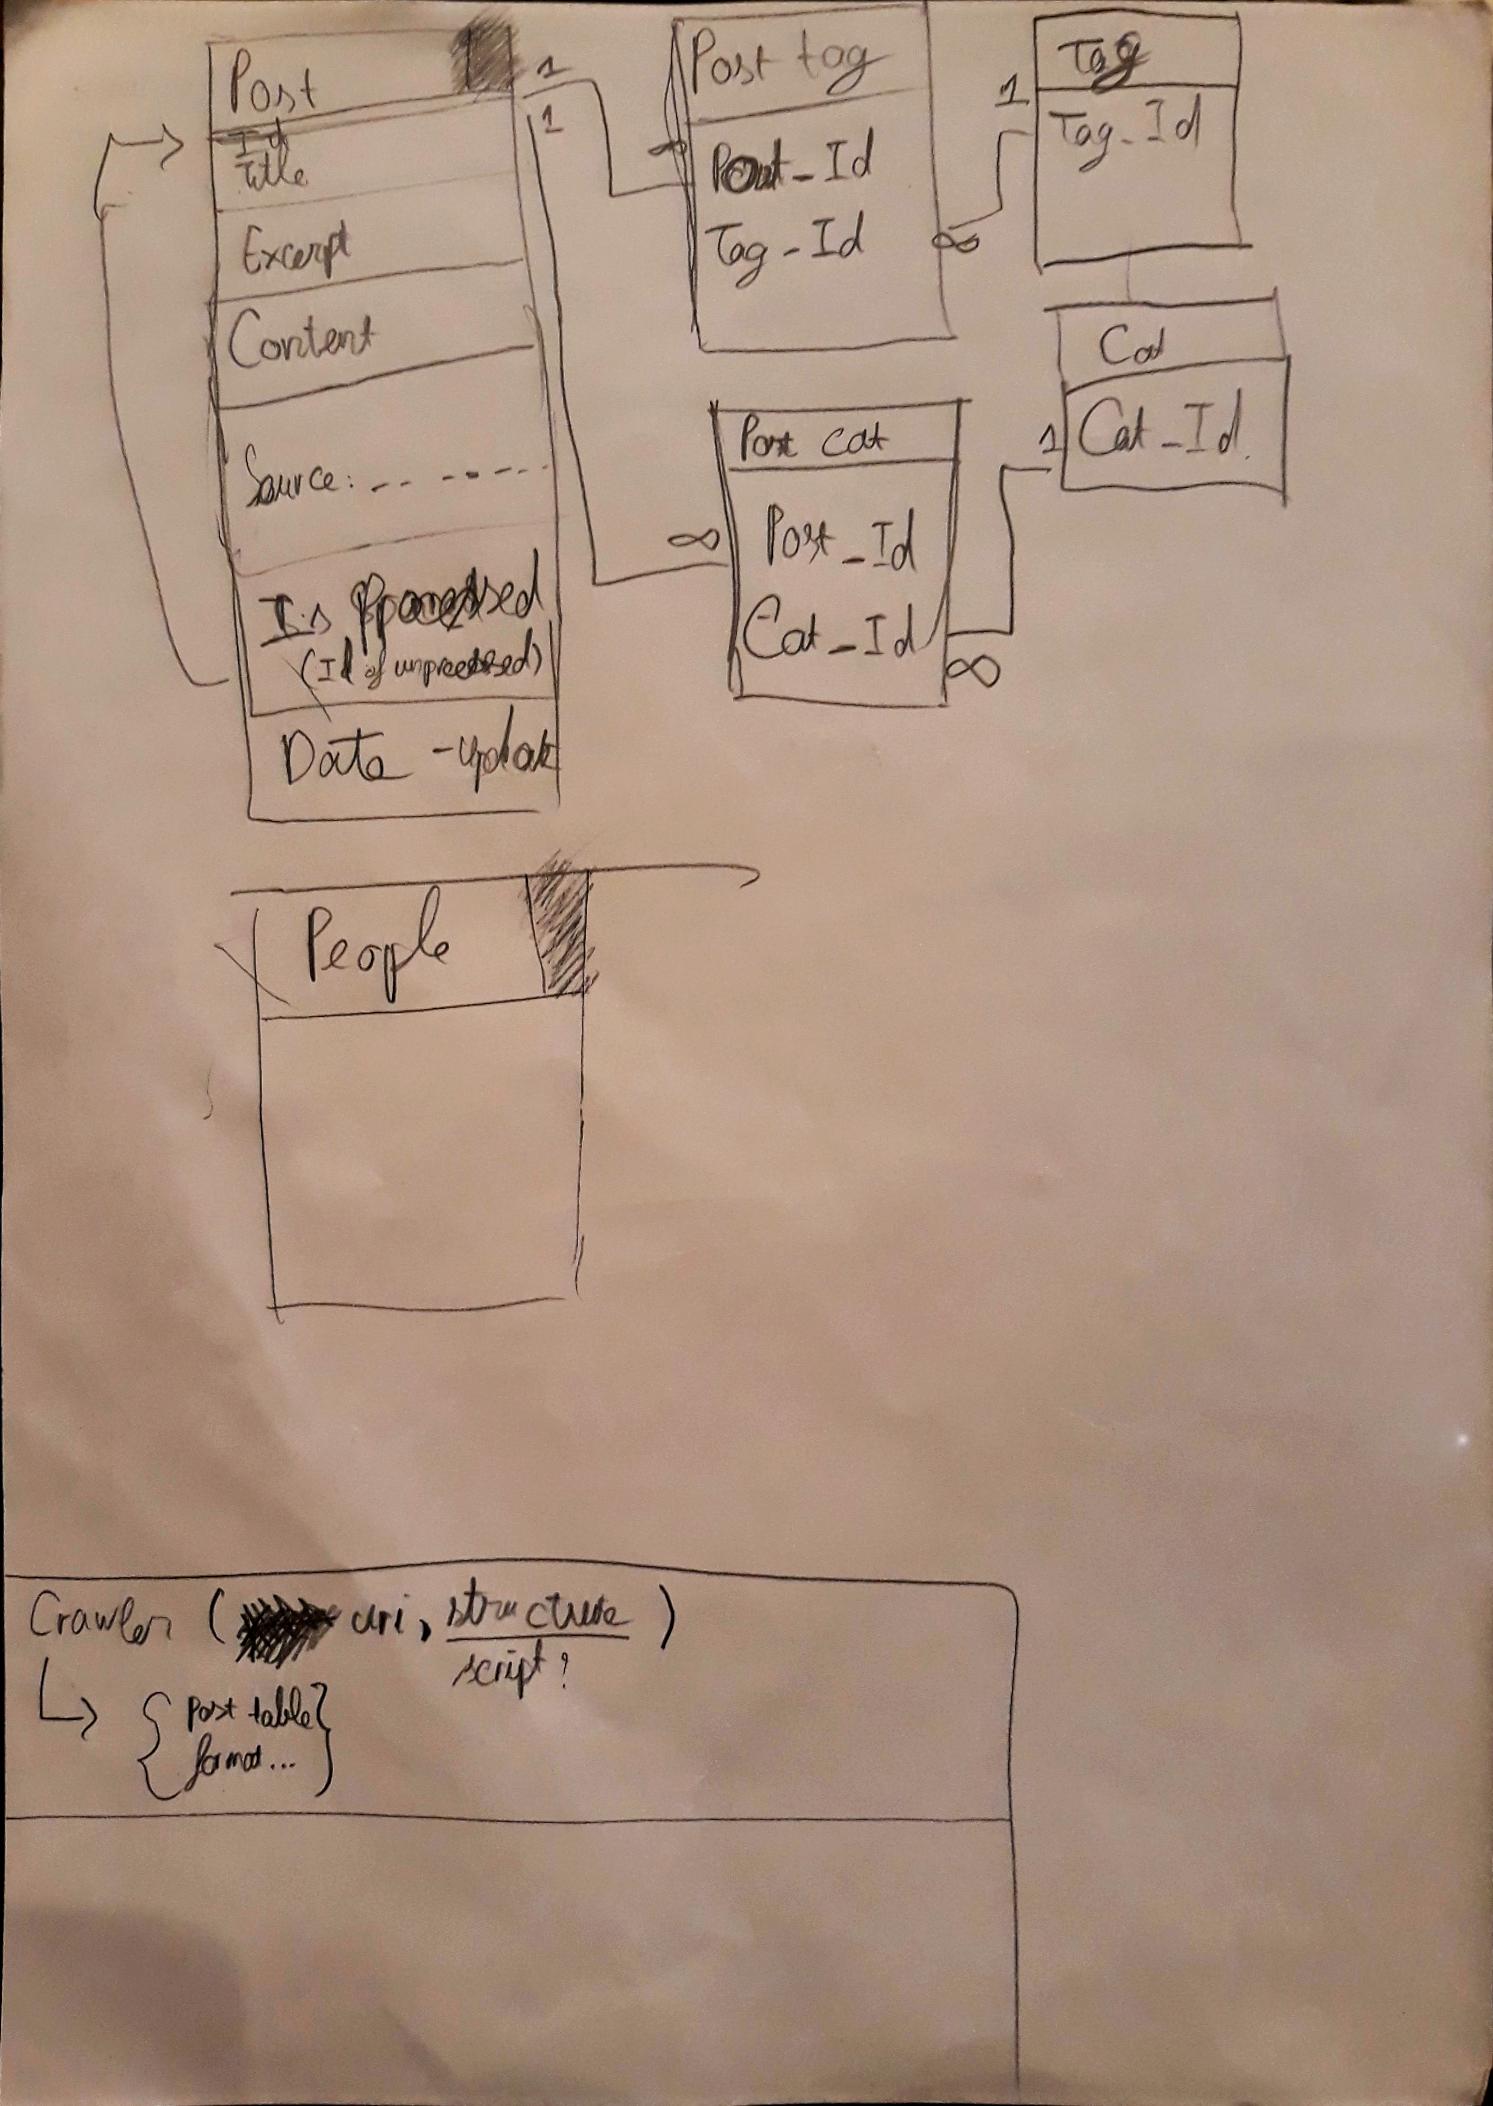 Post
Id
Title
Excerpt
Content
Source: -- -----
Is Processed
(Id of unprocessed)
Date -update
1
1
Post tag
∞
Post_Id
Tag-Id
∞
1
Tag
Tag-Id
Cat
1
Cat_Id
Post cat
∞
Post_Id
Cat_Id
∞
People
Crawler ( uri, structure )
script?
{ Post table }
format...